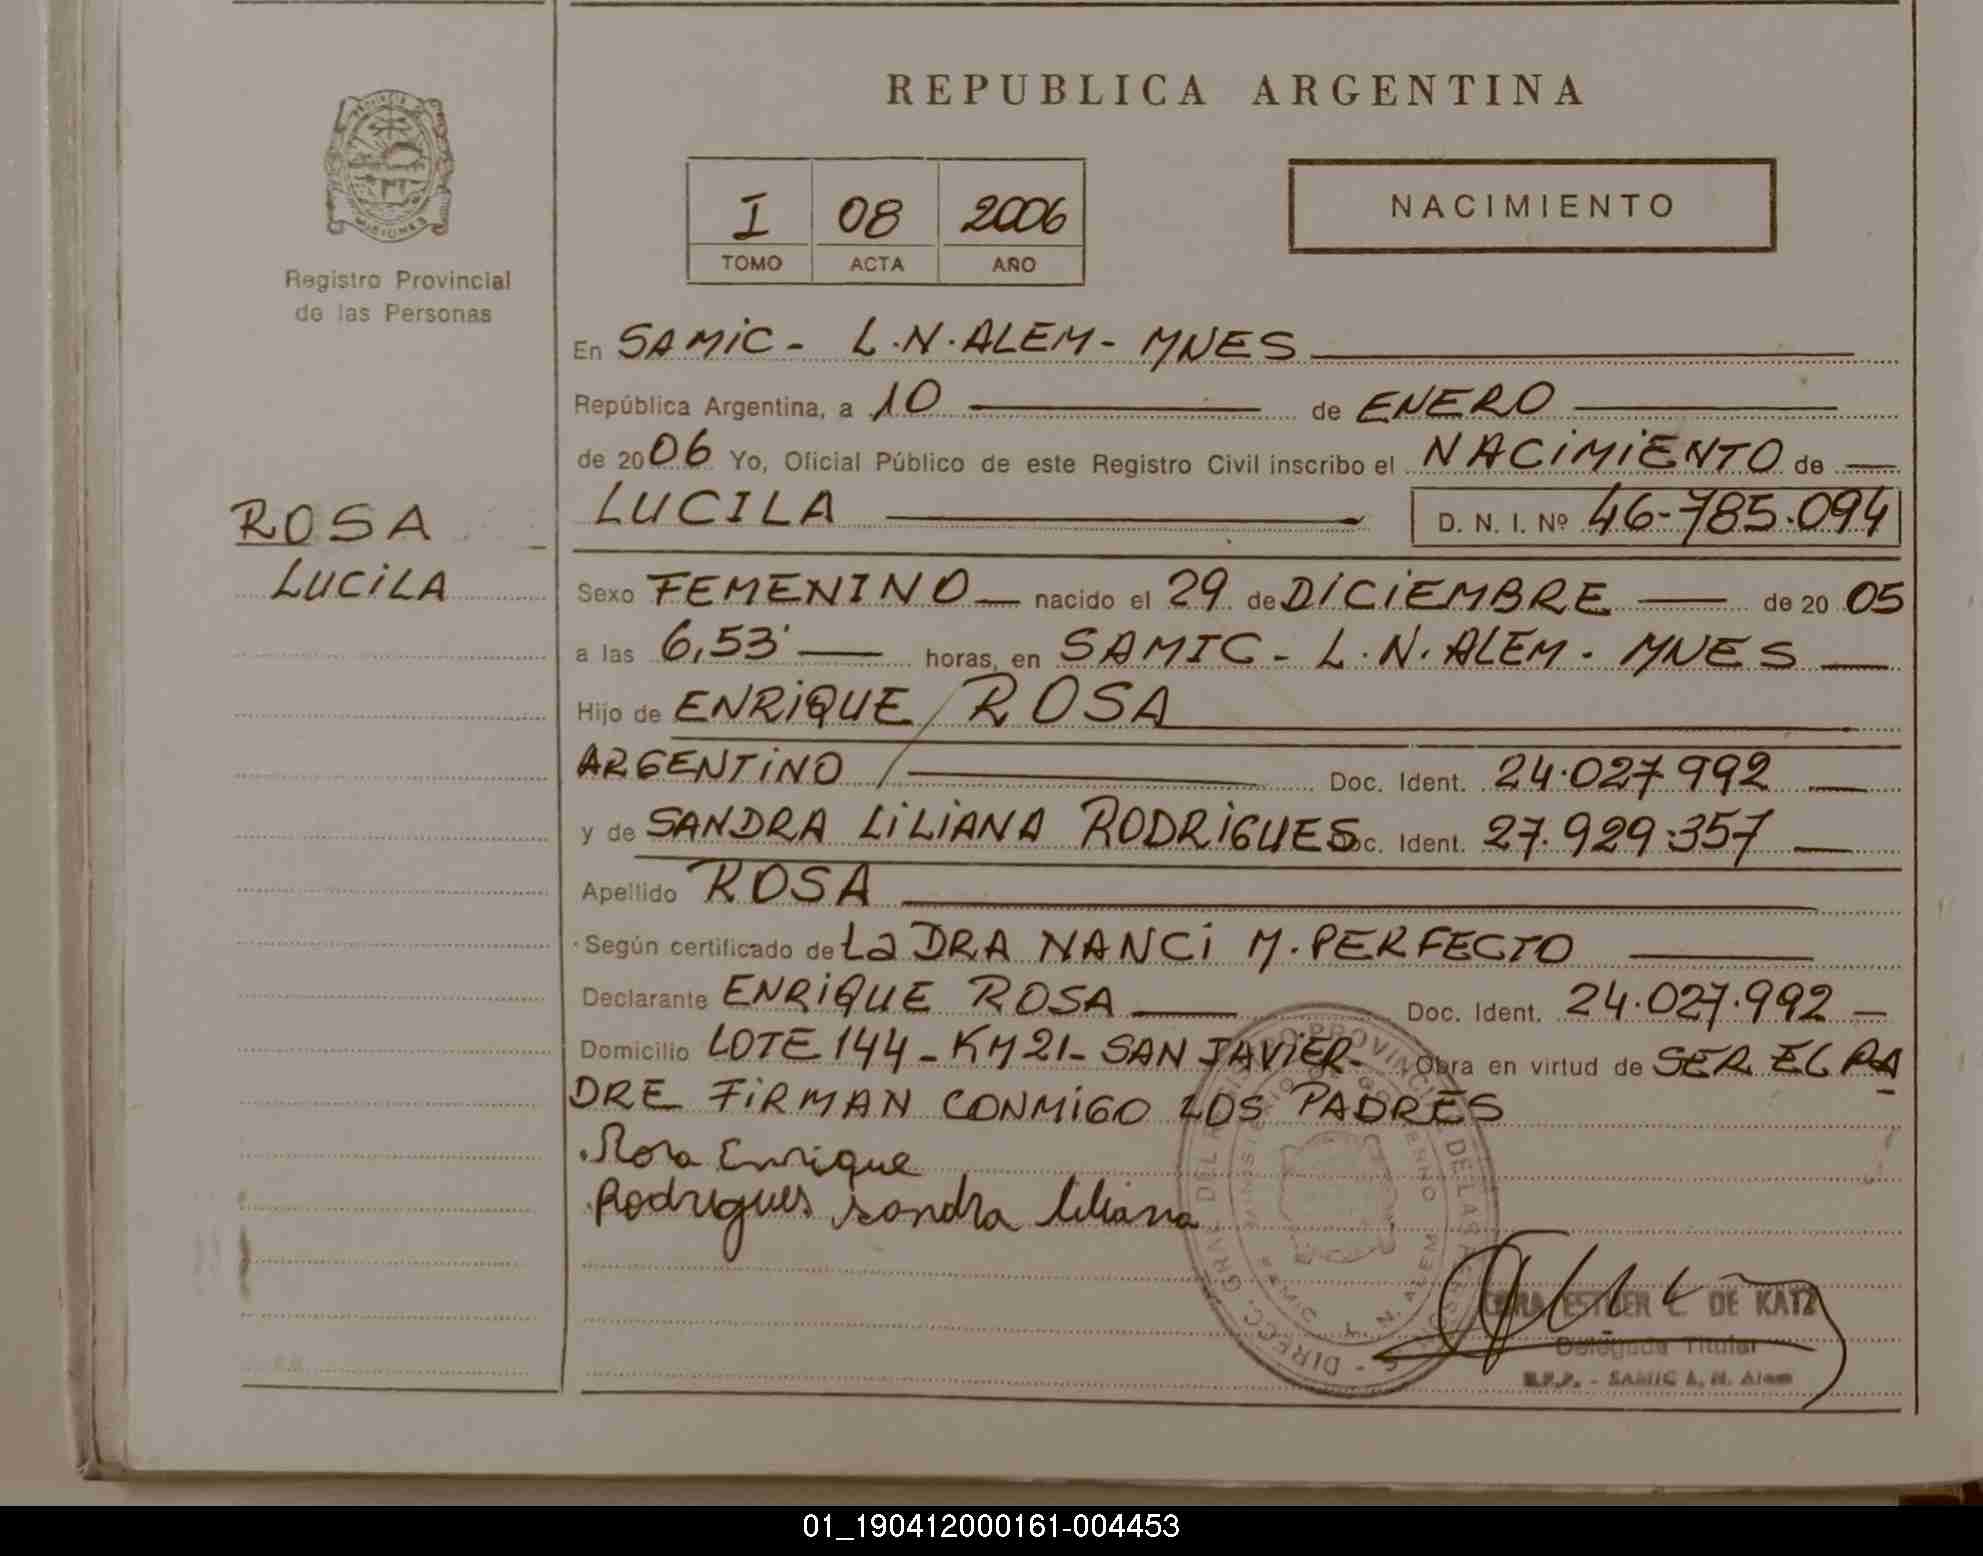 REPUBLICA ARGENTINA
PROVINCIA DE MISIONES
Registro Provincial
de las Personas
I 08 2006
TOMO ACTA AÑO
NACIMIENTO
En SAMIC - L.N.ALEM - MNES
República Argentina, a 10 de ENERO
de 2006 Yo, Oficial Público de este Registro Civil inscribo el NACIMIENTO de
LUCILA D. N. I. Nº 46-785.094
ROSA
LUCILA
Sexo FEMENINO nacido el 29 de DICIEMBRE de 20 05
a las 6,53' horas, en SAMIC - L.N. ALEM - MNES
Hijo de ENRIQUE / ROSA
ARGENTINO Doc. Ident. 24.027.992
y de SANDRA LILIANA RODRIGUES Doc. Ident. 27.929.357
Apellido ROSA
Según certificado de La DRA NANCI M. PERFECTO
Declarante ENRIQUE ROSA Doc. Ident. 24.027.992
Domicilio LOTE 144 - KM 21 - SAN JAVIER - Obra en virtud de SER EL PA
DRE FIRMAN CONMIGO LOS PADRES
Rosa Enrique
Rodrigues Sandra liliana
ESTHER C. DE KATZ
Delegada Titular
R.P.P. - SAMIC L. N. Alem
01_190412000161-004453